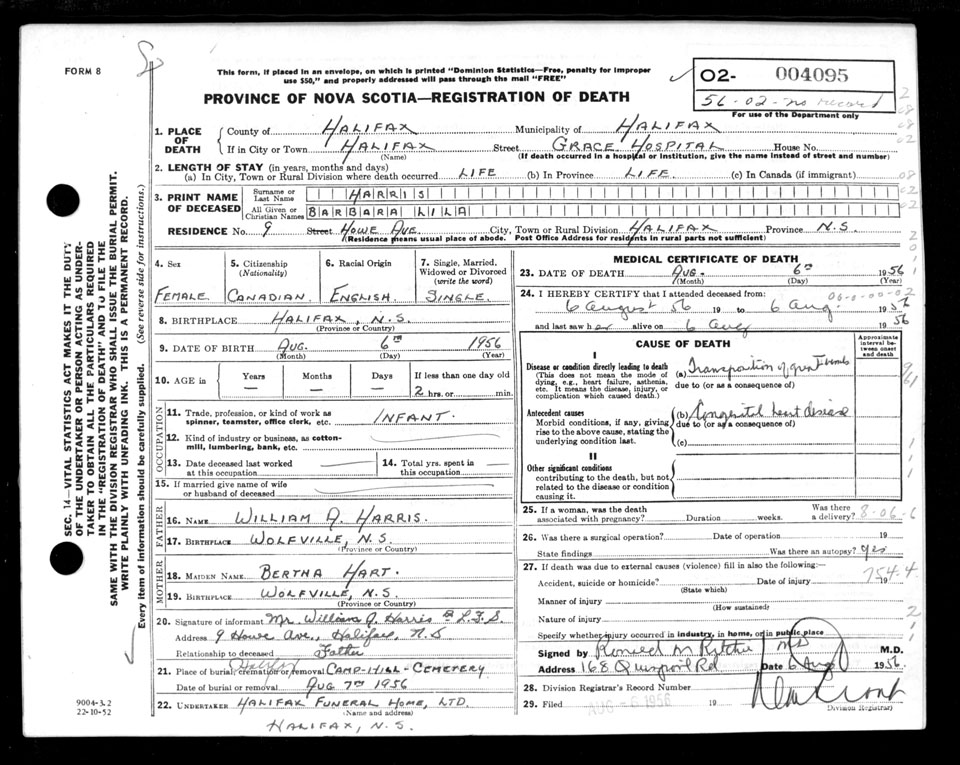 FORM 8
This form, if placed in an envelope, on which is printed "Dominion Statistics—Free, penalty for improper
use $50," and properly addressed will pass through the mail "FREE"
PROVINCE OF NOVA SCOTIA—REGISTRATION OF DEATH
O2- 004095
56-02-no record
For use of the Department only
1. PLACE OF DEATH
County of HALIFAX Municipality of HALIFAX
If in City or Town HALIFAX Street GRACE HOSPITAL House No.
(Name) (If death occurred in a hospital or institution, give the name instead of street and number)
2. LENGTH OF STAY (in years, months and days)
(a) In City, Town or Rural Division where death occurred LIFE (b) In Province LIFE. (c) In Canada (if immigrant)
3. PRINT NAME OF DECEASED
Surname or Last Name HARRIS
All Given or Christian Names BARBARA LILA
RESIDENCE No. 9 Street HOWE AVE. City, Town or Rural Division HALIFAX Province N.S.
(Residence means usual place of abode. Post Office Address for residents in rural parts not sufficient)
4. Sex
FEMALE
5. Citizenship (Nationality)
CANADIAN
6. Racial Origin
ENGLISH
7. Single, Married, Widowed or Divorced (write the word)
SINGLE
8. BIRTHPLACE HALIFAX, N.S.
(Province or Country)
9. DATE OF BIRTH AUG. 6TH 1956
(Month) (Day) (Year)
10. AGE in Years — Months — Days — If less than one day old 2 hrs. or min.
OCCUPATION
11. Trade, profession, or kind of work as spinner, teamster, office clerk, etc. INFANT.
12. Kind of industry or business, as cotton-mill, lumbering, bank, etc.
13. Date deceased last worked at this occupation
14. Total yrs. spent in this occupation
15. If married give name of wife or husband of deceased
FATHER
16. NAME WILLIAM A. HARRIS.
17. BIRTHPLACE WOLFVILLE, N.S.
(Province or Country)
MOTHER
18. MAIDEN NAME BERTHA HART.
19. BIRTHPLACE WOLFVILLE, N.S.
(Province or Country)
20. Signature of informant Mr. William A. Harris
Address 9 Howe Ave., Halifax, N S
Relationship to deceased Father
21. Place of burial, cremation or removal Halifax CAMP-HILL-CEMETERY
Date of burial or removal AUG 7TH 1956
22. UNDERTAKER HALIFAX FUNERAL HOME, LTD.
(Name and address)
HALIFAX, N.S.
MEDICAL CERTIFICATE OF DEATH
23. DATE OF DEATH AUG. 6TH 1956
(Month) (Day) (Year)
24. I HEREBY CERTIFY that I attended deceased from:
06-0-00-02
6 August 56 19 to 6 Aug. 1956
and last saw her alive on 6 Aug 1956
CAUSE OF DEATH
Approximate interval between onset and death
I
Disease or condition directly leading to death
(This does not mean the mode of dying, e.g., heart failure, asthenia, etc. It means the disease, injury, or complication which caused death.)
(a) Transposition of great
due to (or as a consequence of)
Antecedent causes
Morbid conditions, if any, giving rise to the above cause, stating the underlying condition last.
(b) Congenital heart disease
due to (or as a consequence of)
(c)
II
Other significant conditions
contributing to the death, but not related to the disease or condition causing it.
25. If a woman, was the death associated with pregnancy? Duration weeks. Was there a delivery? 8-06-6
26. Was there a surgical operation? Date of operation 19
State findings Was there an autopsy? yes
27. If death was due to external causes (violence) fill in also the following:—
754.4
Accident, suicide or homicide? Date of injury 19
(State which)
Manner of injury
(How sustained)
Nature of injury
Specify whether injury occurred in industry, in home, or in public place
Signed by Ronald M Ritchie MD M.D.
Address 168 Quinpool Rd Date 6 Aug 1956
28. Division Registrar's Record Number
29. Filed AUG - 6 1956 19
Division Registrar)
9004-3.2
22-10-52
SEC. 14—VITAL STATISTICS ACT MAKES IT THE DUTY
OF THE UNDERTAKER OR PERSON ACTING AS UNDER-
TAKER TO OBTAIN ALL THE PARTICULARS REQUIRED
IN THE "REGISTRATION OF DEATH" AND TO FILE THE
SAME WITH THE DIVISION REGISTRAR WHO SHALL ISSUE THE BURIAL PERMIT.
WRITE PLAINLY WITH UNFADING INK. THIS IS A PERMANENT RECORD.
Every item of information should be carefully supplied. (See reverse side for instructions.)